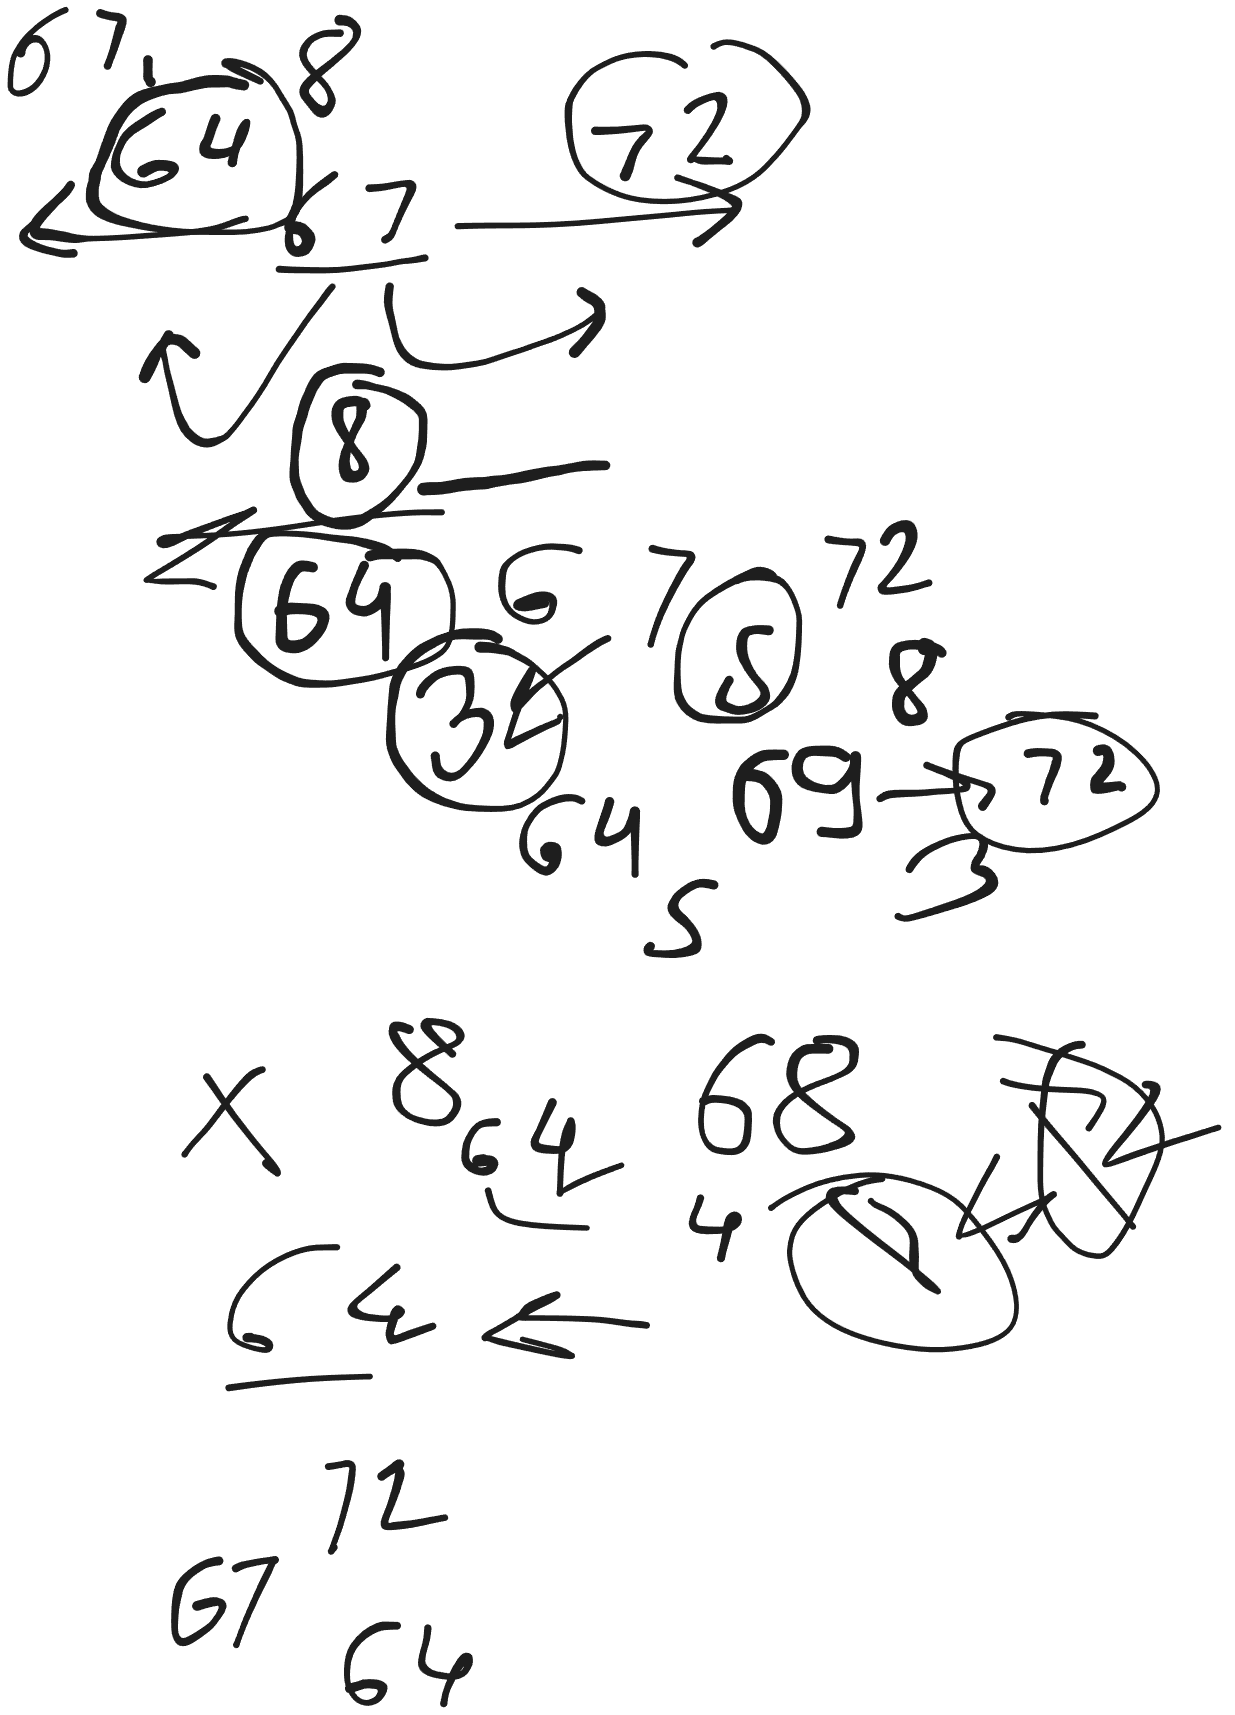 67, 8
64 72
67
8
64 67 5 72
3 8
69 72
64 3
5
x 8 68 72
64 4
64
72
67
64